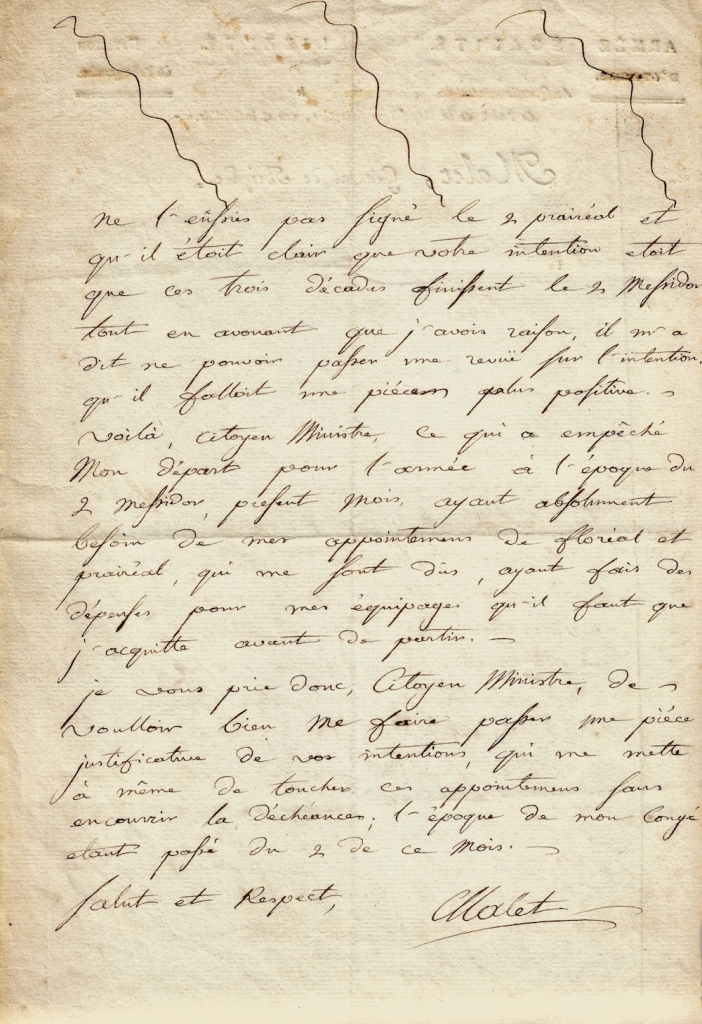 ne l'eussiés pas signé le 2 prairéal et
qu'il étoit clair que votre intention etoit
que ces trois décades finissent le 2 Messidor
tout en avouant que j'avois raison, il m'a
dit ne pouvoir passer une revüe sur l'intention,
qu'il falloit une piéce plus positive.
voilà, Citoyen Ministre, ce qui a empêché
Mon départ pour l'armée à l'époque du
2 Messidor, présent Mois, ayant absolument
besoin de mes appointemens de floréal et
prairéal, qui me sont dûs, ayant fais des
dépenses pour mes équipages qu'il faut que
j'acquitte avant de partir.
je vous prie donc, Citoyen Ministre, de
voulloir bien me faire passer une piéce
justificative de vos intentions, qui me mette
à même de toucher ces appointemens sans
encourrir la déchéances, l'époque de mon Congé
etant passé du 2 de ce Mois.
Salut et Respect,
Malet